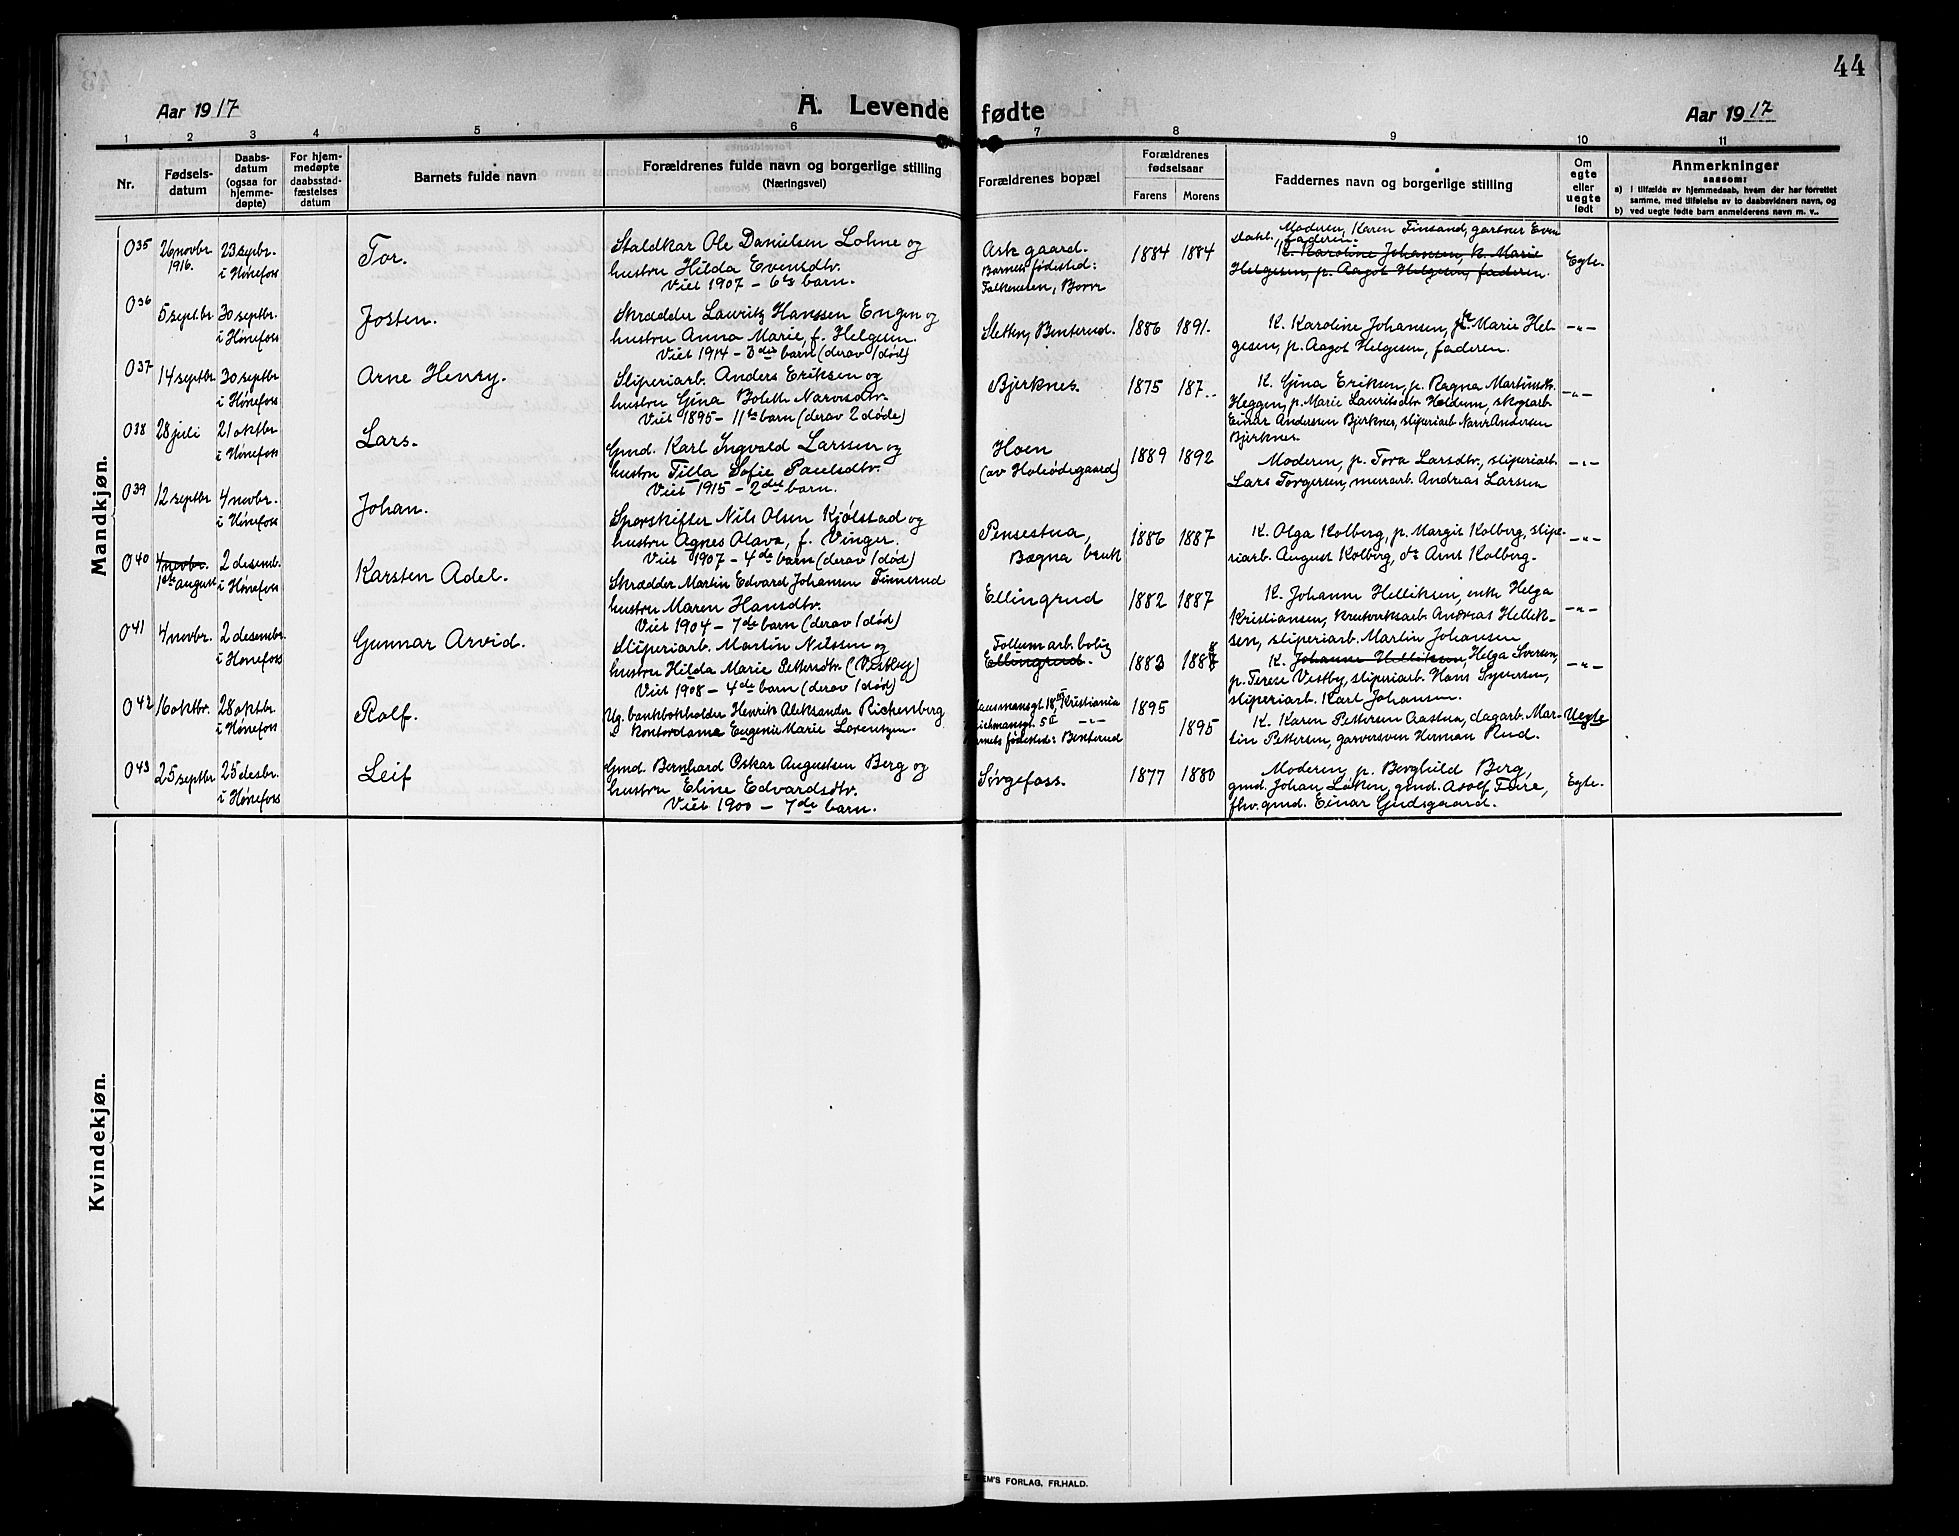 44
Aar 1917
A. Levende fødte
Aar 1917
1 2 3 4 5 6 7 8 9 10 11
Nr.
Fødsels-
datum
Daabs-
datum
(ogsaa for
hjemme-
døpte)
For hjem-
medøpte
daabsstad-
fæstelses
datum
Barnets fulde navn
Forældrenes fulde navn og borgerlige stilling
(Næringsvei)
Forældrenes bopæl
Forældrenes
fødselsaar
Farens Morens
Faddernes navn og borgerlige stilling
Om
egte
eller
uegte
født
Anmerkninger
saasom:
a) I tilfælde av hjemmedaab, hvem der har forrettet
samme, med tilføielse av to daabsvidners navn, og
b) ved uegte fødte barn anmelderens navn m. v..
Mandkjøn.
035
26 novbr.
1916.
23 sepbr.
i Hønefoss
Tor.
Staldkar Ole Danielsen Lohne og
hustru Hilda Evensdtr.
Viet 1907 - 6te barn.
Ask gaard.
Barnets fødested:
Born
1884 1884
Moderen, Karen Finsand, gartner Even
faderen.
K. Karoline Johansen, k. Marie
Helgesen, p. Aagot Helgesen, faderen.
Egte.
036
5 septbr.
30 septbr
i Hønefoss
Josten.
Skrædder Lauritz Hanssen Engen og
hustru Anna Marie, f. Helgesen.
Viet 1914 - 3die barn (derav 1 død)
Sletten, Benterud.
1886 1891.
K. Karoline Johansen, Marie Hel-
gesen, p. Aagot Helgesen, faderen.
-"-
037
14 septbr.
30 septbr
i Hønefoss
Arne Henry.
Sliperiarb. Anders Eriksen og
hustru Gina Bolette Narvesdtr.
Viet 1895 - 11te barn (derav 2 døde)
Bjerknes.
1875 187..
K. Gina Eriksen, p. Ragna Martinsdtr.
Heggen, p. Marie Lauritsdtr. Holdum, skogsarb.
Einar Andersen Bjerknes, sliperiarb. Narve Andersen
Bjerknes.
-"-
038
28 juli
21 oktbr
i Hønefoss
Lars.
Gmd. Karl Ingvald Larssen og
hustru Tilla Sofie Paulsdtr.
Viet 1915 - 2det barn.
Hoen
(av Holeødegaard)
1889 1892
Moderen, p. Tora Larsdtr., sliperiarb.
Lars Torgersen, murarb. Andreas Larsen
-"-
039
12 septbr
4 novbr.
i Hønefoss
Johan.
Sporskifter Nils Olsen Kjølstad og
hustru Agnes Olava, f. Vinger.
Viet 1907 - 4de barn (derav 1 død)
Pensestua,
Bægna bruk
1886 1887
K. Olga Kolberg, p. Margit Kolberg, slipe-
riarb. August Kolberg, do Arnt Kolberg.
-"-
040
4 novbr.
1ste august
2 desemb.
i Hønefoss
Karsten Adel.
Skrædder Martin Edvard Johansen Finnerud
hustru Maren Hansdtr.
Viet 1904 - 7de barn (derav 1 død)
Ellingrud
1882 1887
K. Johanne Helliksen, enke Helga
Kristiansen, Andreas Hellik-
sen, sliperiarb. Martin Johansen
-"-
041
4 novbr.
2 desembr.
i Hønefoss
Gunnar Arvid.
Sliperiarb. Martin Nilssen og
hustru Hilda Marie Pettersdtr. (Vestby)
Viet 1908 - 4de barn (derav 1 død)
Follum arb. bolig
Ellingrud.
1883 1888
K. Johanne Helliksen, Helga Iversen,
p. Terese Vestby, sliperiarb. Hans Syversen,
sliperiarb. Karl Johansen.
-"-
042
16 oktbr.
28 oktbr.
i Hønefoss
Rolf.
Ug. bankbokholder Henrik Aleksander Rickenberg
& Kontordame Eugenie Marie Lorentzen.
Kristiania
5II -"-
fødested: Benterud
1895
1895
K. Karen Pettersen Aastua, dagarb. Mar-
tin Pettersen, garversven Herman Rud.
Uegte
043
25 septbr
25 desbr.
i Hønefoss
Leif
Gmd. Bernhard Oskar Augustsen Berg og
hustru Eline Edvardsdtr.
Viet 1900 - 7de barn.
Sørgefoss.
1877 1880
Moderen, p. Borghild Berg,
gmd. Johan Løken, gmd. Adolf Feire,
fhv. gmd. Einar Gudsgaard.
Egte.
Kvindekjøn.
FORLAG, FR.HALD.